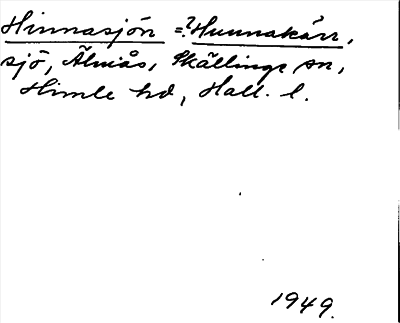 Hinnasjön =? Hunnakärr,
sjö, Älmås, Skällinge sn,
Himle hd, Hall. l.
1949.